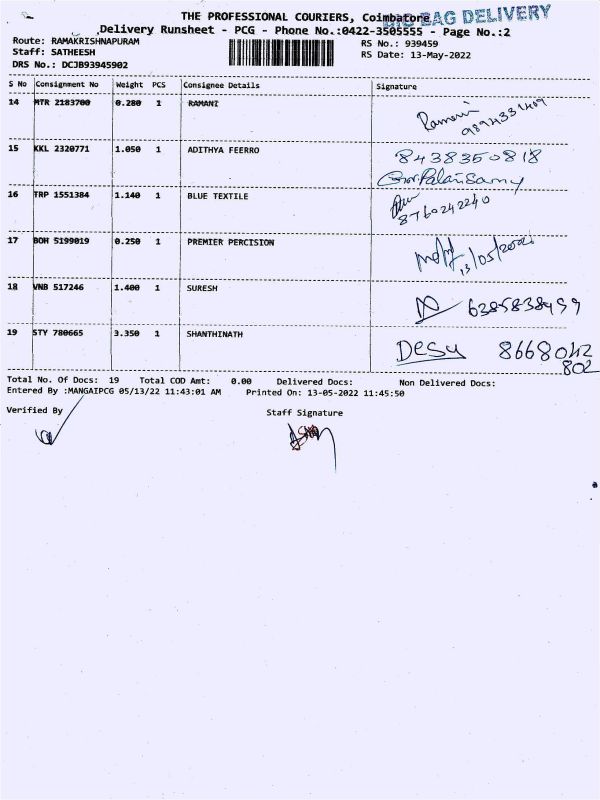 THE PROFESSIONAL COURIERS, Coimbatore
BIG BAG DELIVERY
Delivery Runsheet - PCG - Phone No.:0422-3505555 - Page No.:2
Route: RAMAKRISHNAPURAM
RS No.: 939459
Staff: SATHEESH
RS Date: 13-May-2022
DRS No.: DCJB93945902
S No Consignment No Weight PCS Consignee Details Signature
14 MTR 2183700 0.280 1 RAMANI
Ramani
9894331409
15 KKL 2320771 1.050 1 ADITHYA FEERRO 8438350818
16 TRP 1551384 1.140 1 BLUE TEXTILE
8760242240
17 BOH 5199019 0.250 1 PREMIER PERCISION
13/05/2022
18 VNB 517246 1.400 1 SURESH
6385838459
19 STY 780665 3.350 1 SHANTHINATH
Desu 8668042
802
Total No. Of Docs: 19 Total COD Amt: 0.00 Delivered Docs: Non Delivered Docs:
Entered By :MANGAIPCG 05/13/22 11:43:01 AM Printed On: 13-05-2022 11:45:50
Verified By Staff Signature